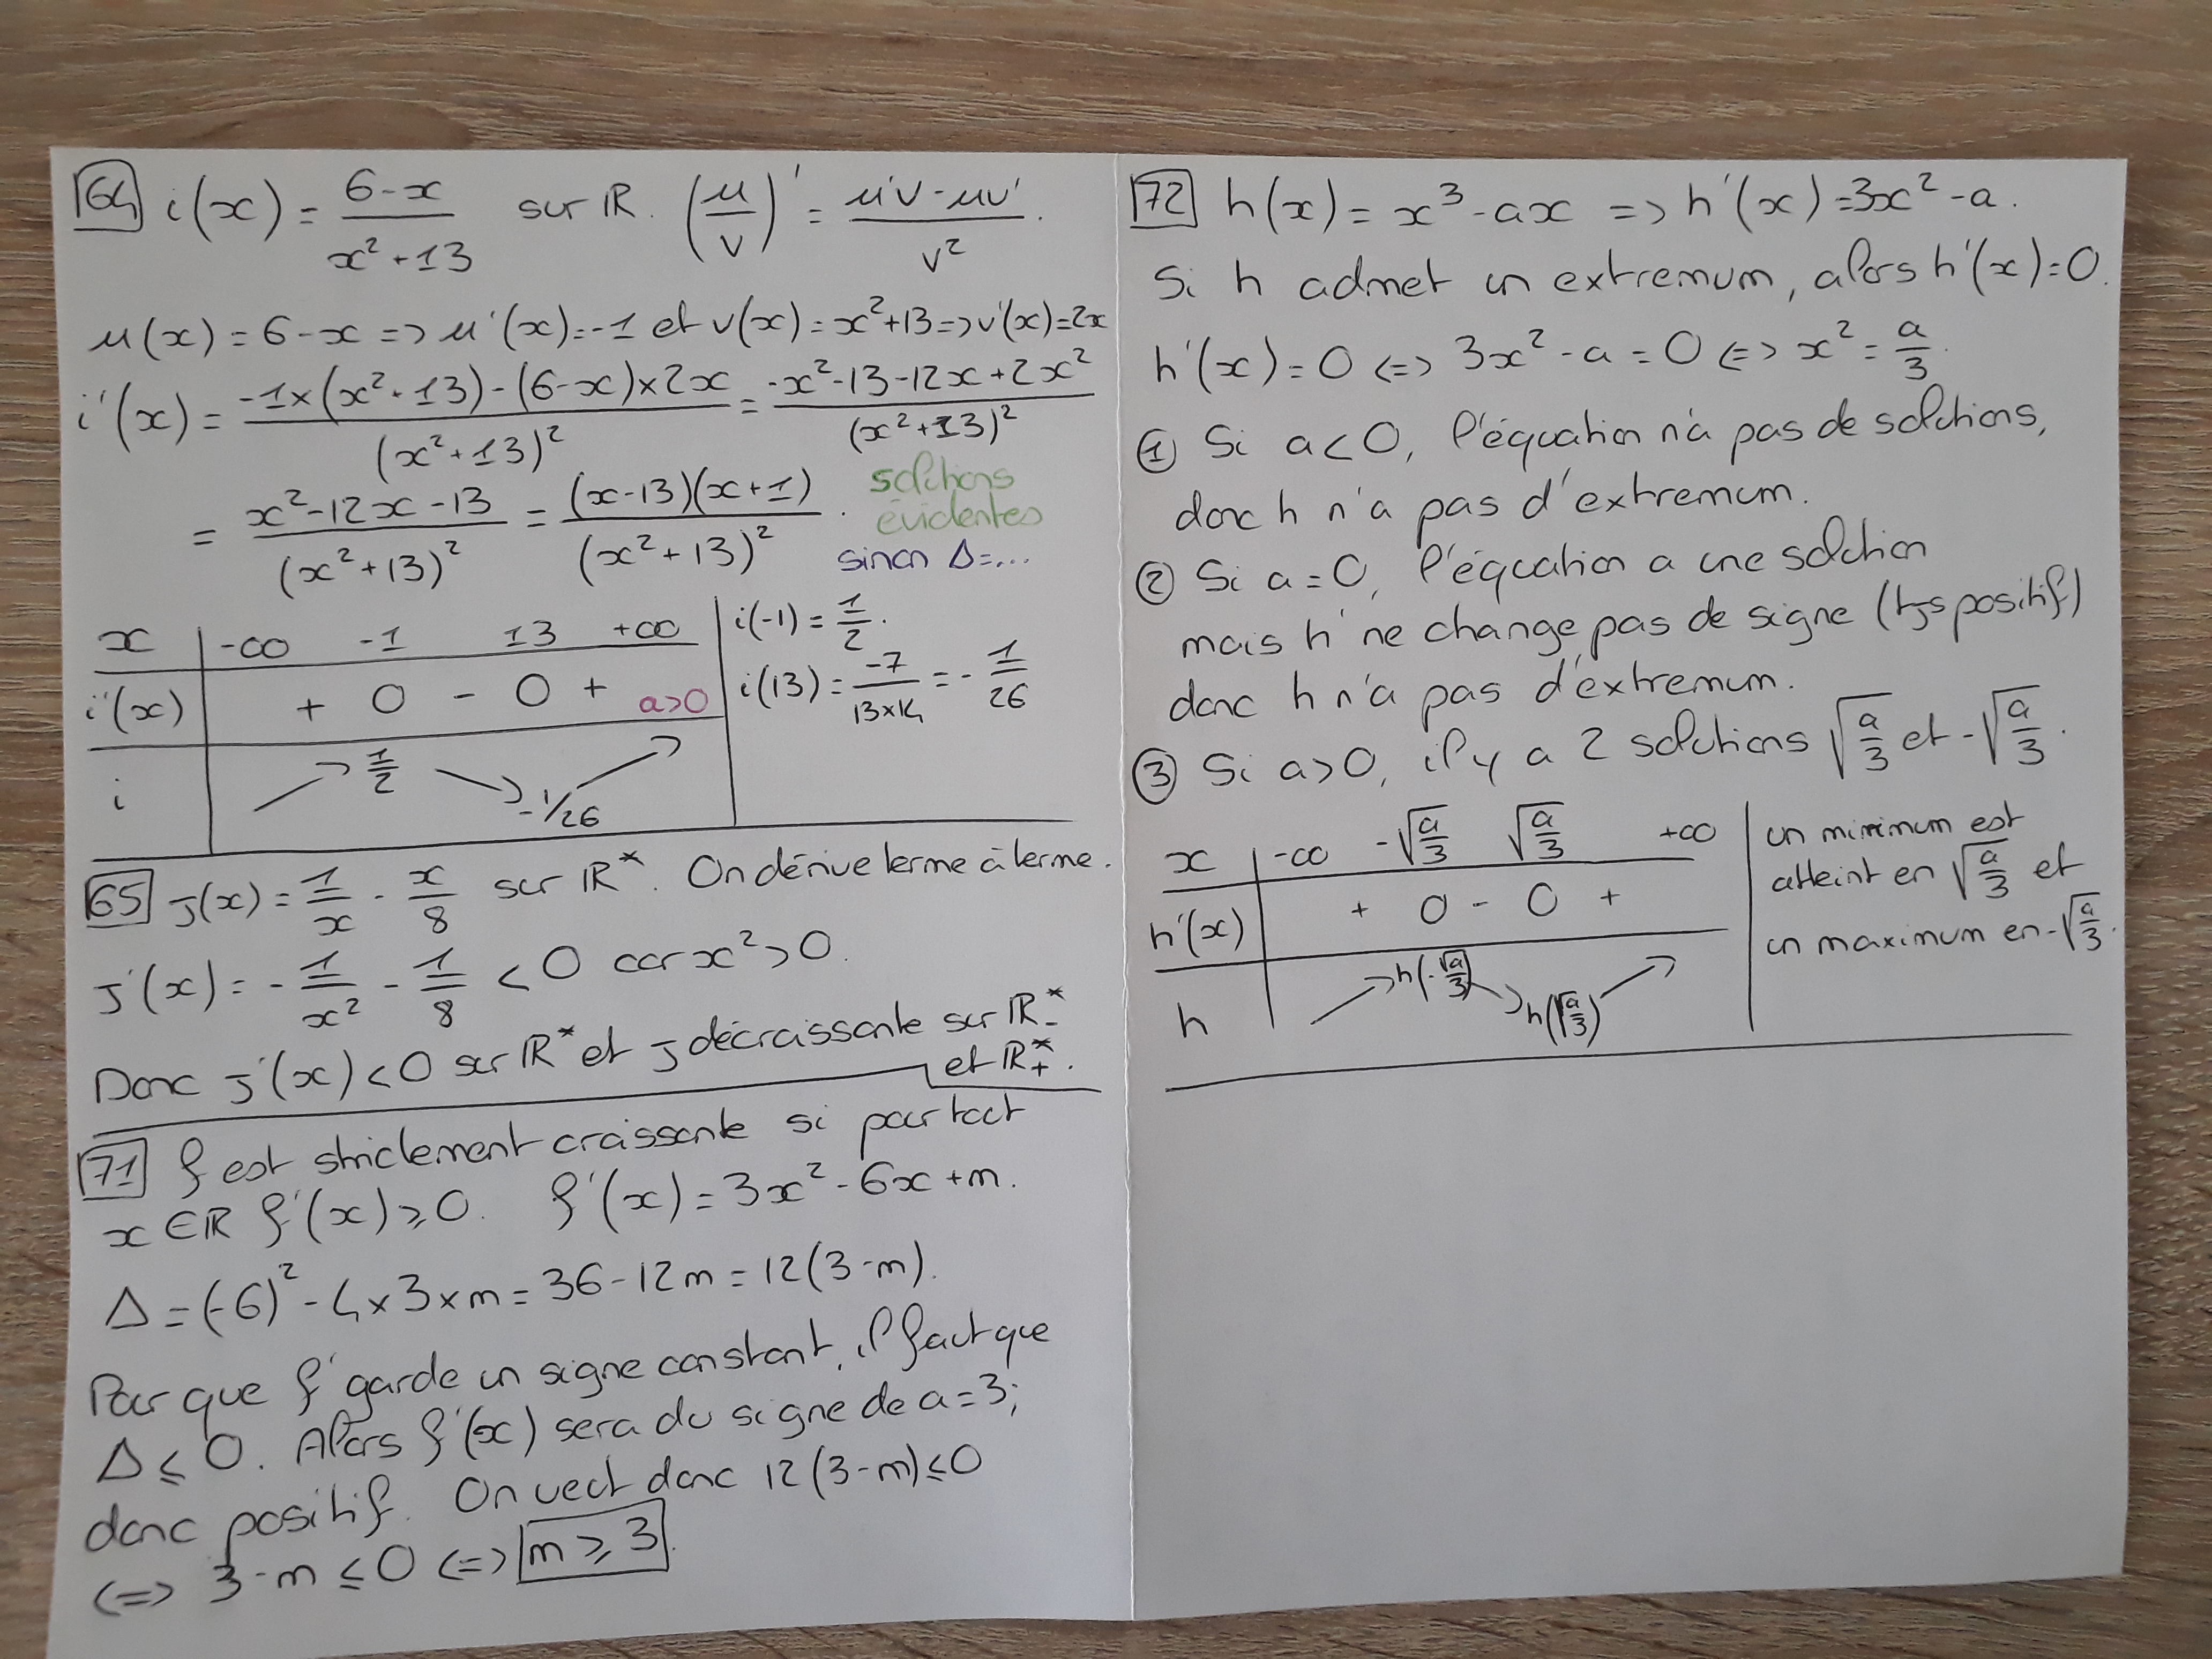 64 i(x) = (6-x)/(x²+13) sur ℝ. (u/v)' = (u'v - uv')/v².
u(x) = 6-x => u'(x)=-1 et v(x)=x²+13=>v'(x)=2x
i'(x) = (-1×(x²+13)-(6-x)×2x)/(x²+13)² = (-x²-13-12x+2x²)/(x²+13)²
= (x²-12x-13)/(x²+13)² = ((x-13)(x+1))/(x²+13)².
solutions
évidentes
sinon Δ=...
x -∞ -1 13 +∞
i'(x) + 0 - 0 + a>0
i ↗ 1/2 ↘ -1/26 ↗
i(-1) = 1/2.
i(13) = -7/(13×14) = -1/26
65 j(x) = 1/x - x/8 sur ℝ*. On dérive terme à terme.
j'(x) = -1/x² - 1/8 < 0 car x²>0.
Donc j'(x)<0 sur ℝ* et j décroissante sur ℝ₋*
et ℝ₊*.
71 f est strictement croissante si pour tout
x ∈ ℝ f'(x) ⩾ 0. f'(x) = 3x²-6x+m.
Δ = (-6)² - 4×3×m = 36-12m = 12(3-m).
Pour que f' garde un signe constant, il faut que
Δ ⩽ 0. Alors f'(x) sera du signe de a=3;
donc positif. On veut donc 12(3-m)⩽0
<=> 3-m ⩽ 0 <=> m ⩾ 3.
72 h(x) = x³-ax => h'(x)=3x²-a.
Si h admet un extremum, alors h'(x)=0.
h'(x)=0 <=> 3x²-a=0 <=> x² = a/3.
① Si a<0, l'équation n'a pas de solutions,
donc h n'a pas d'extremum.
② Si a=0, l'équation a une solution
mais h' ne change pas de signe (tjs positif)
donc h n'a pas d'extremum.
③ Si a>0, il y a 2 solutions √(a/3) et -√(a/3).
x -∞ -√(a/3) √(a/3) +∞
h'(x) + 0 - 0 +
h ↗ h(-√(a/3)) ↘ h(√(a/3)) ↗
un minimum est
atteint en √(a/3) et
un maximum en -√(a/3).